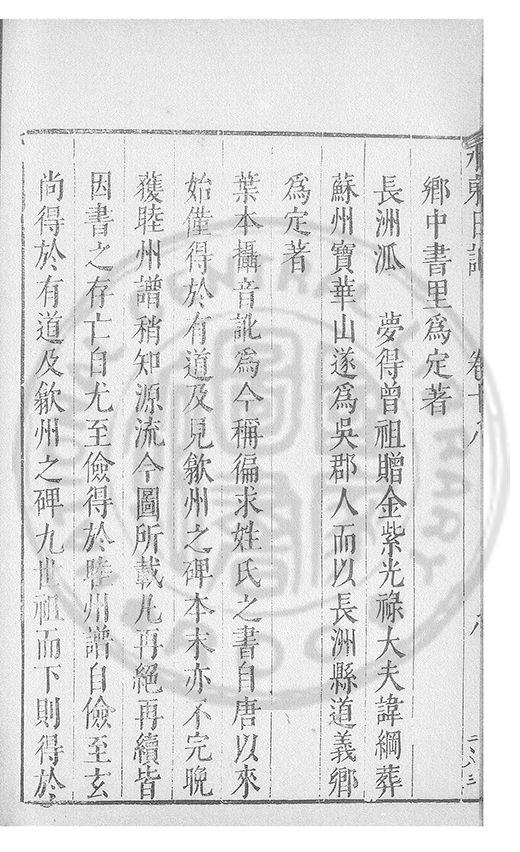 卷十八
八
鄉中書里為定著
長洲派　夢得曾祖贈金紫光祿大夫諱綱葬
蘇州寶華山遂為吳郡人而以長洲縣道義鄉
為定著
葉本攝音訛為今稱徧求姓氏之書自唐以來
始僅得於有道及見歙州之碑本末亦不完晚
獲睦州譜稍知源流今圖所載凡再絕再續皆
因書之存亡自尤至儉得於睦州譜自儉至玄
尚得於有道及歙州之碑九世祖而下則得於